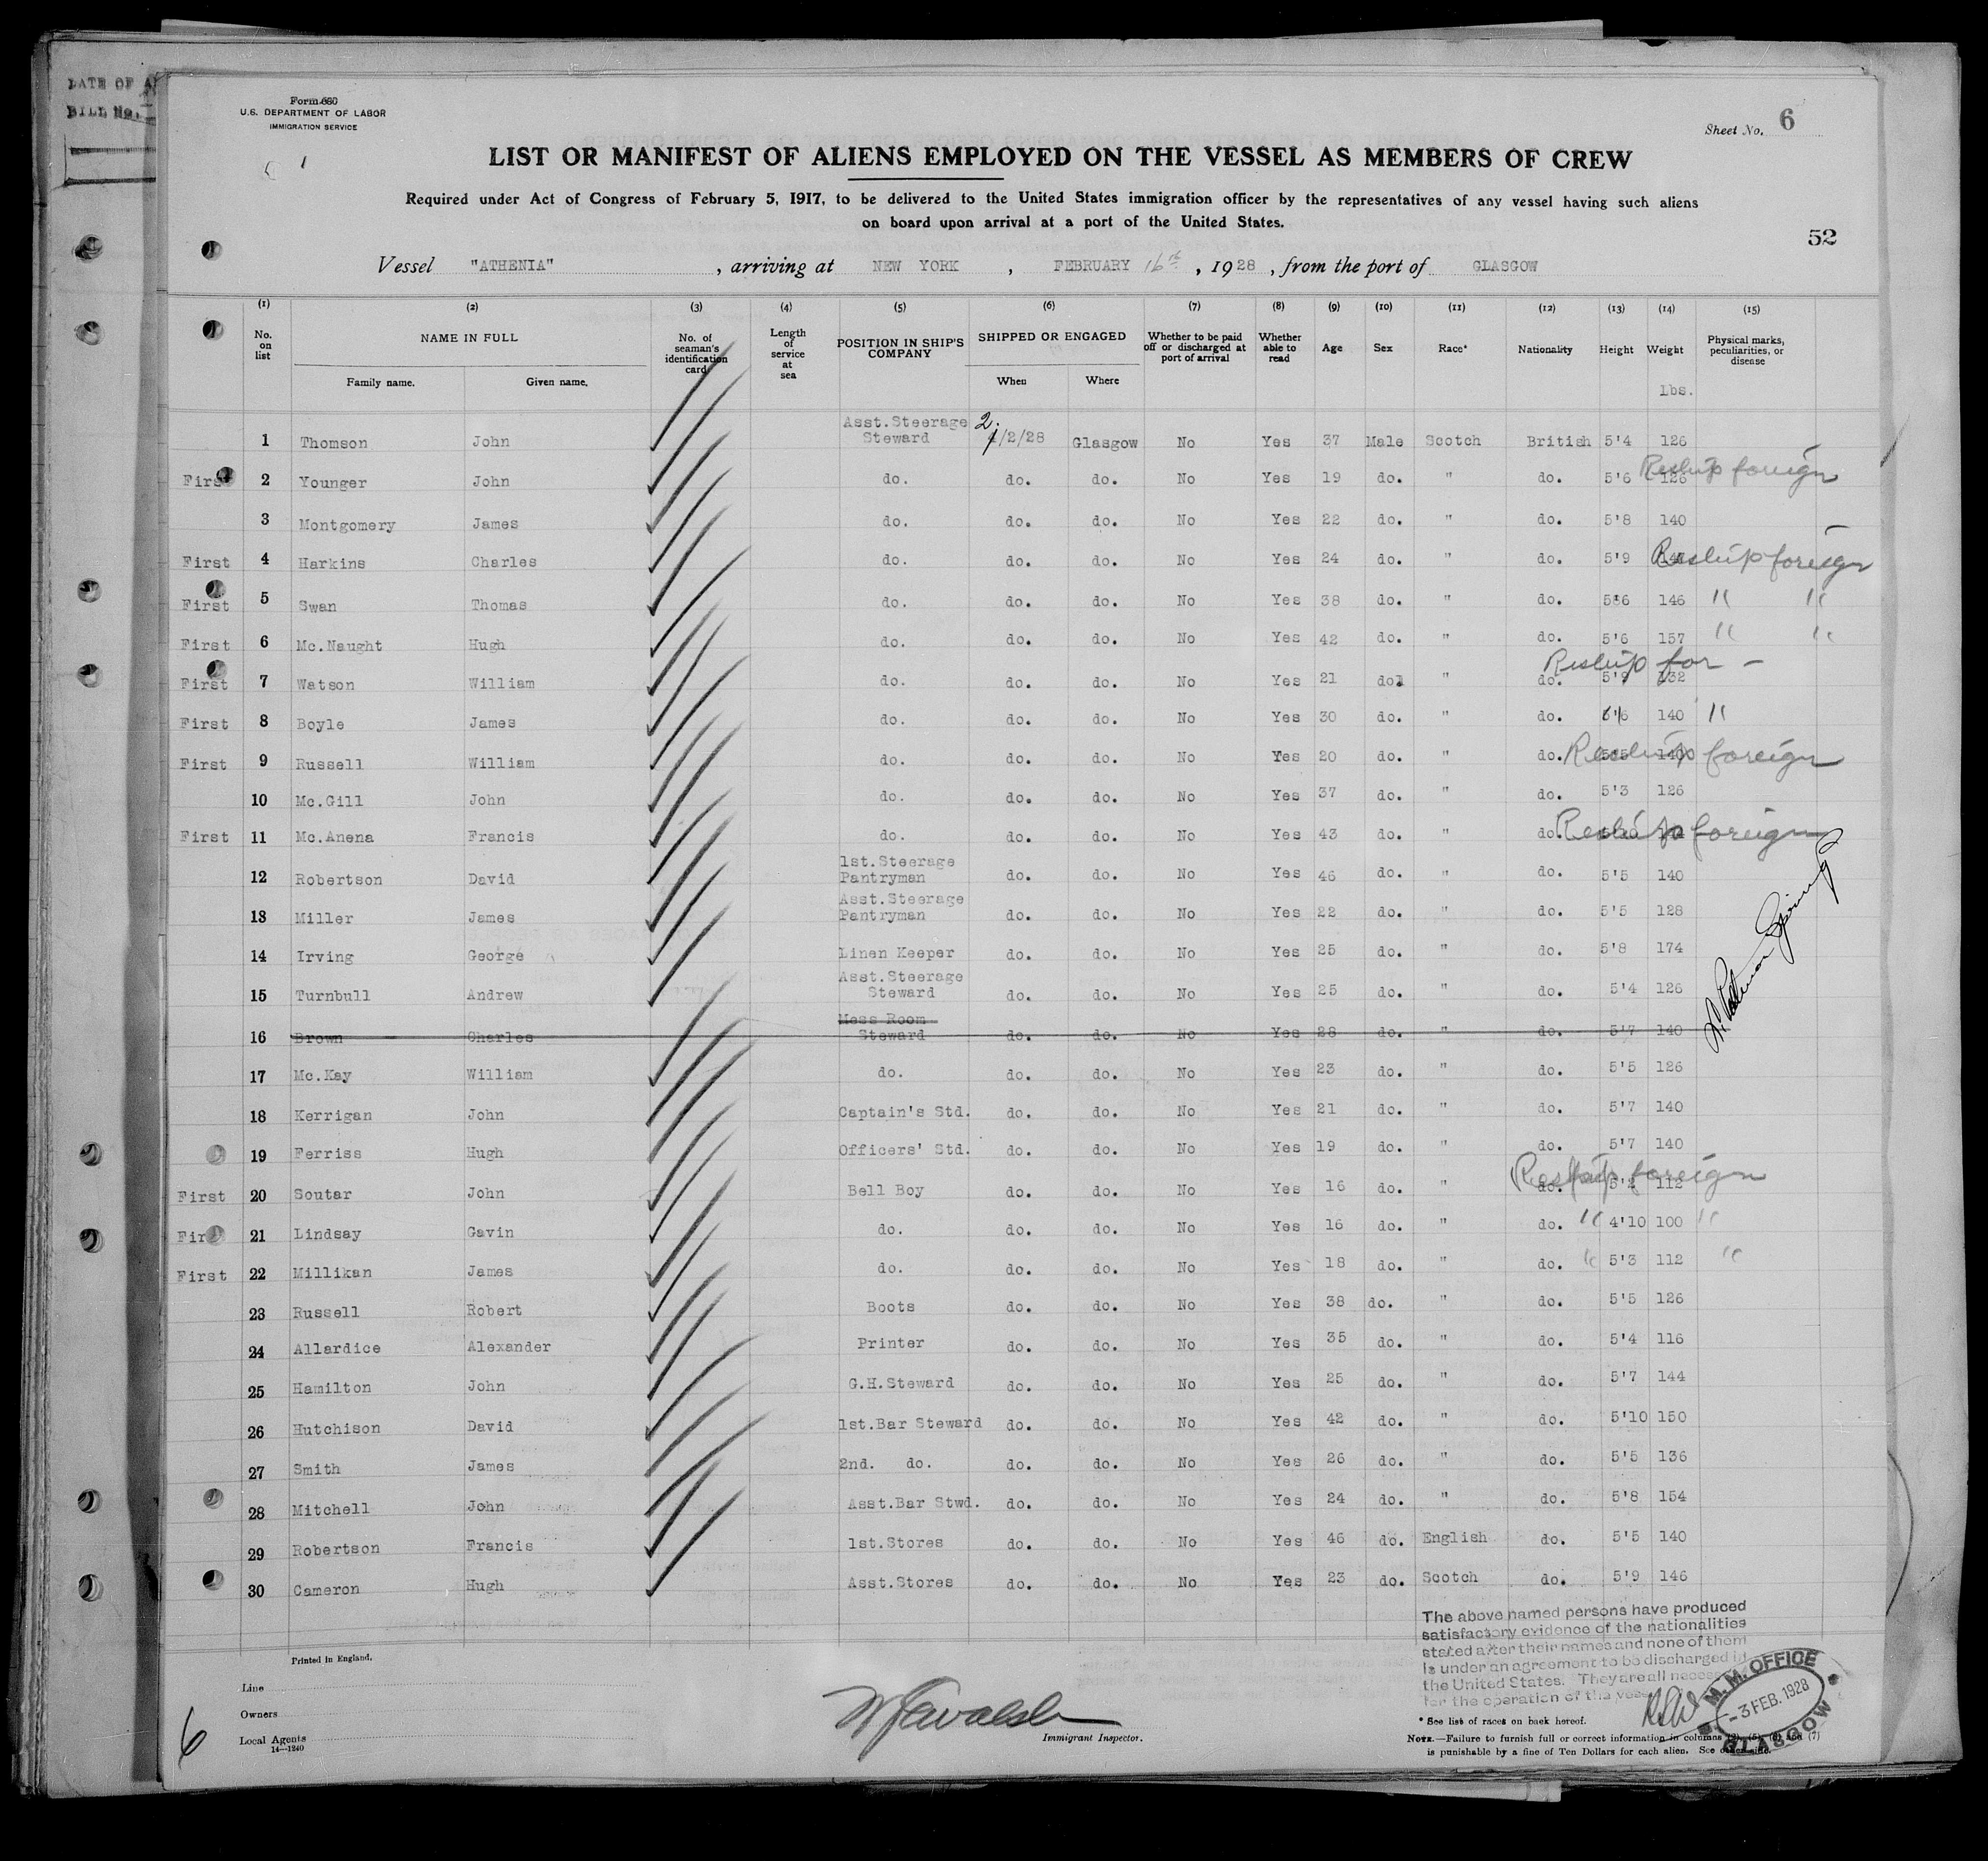 DATE OF A
BILL No.
Form 680
U.S. DEPARTMENT OF LABOR
IMMIGRATION SERVICE
Sheet No. 6
LIST OR MANIFEST OF ALIENS EMPLOYED ON THE VESSEL AS MEMBERS OF CREW
Required under Act of Congress of February 5, 1917, to be delivered to the United States immigration officer by the representatives of any vessel having such aliens
on board upon arrival at a port of the United States.
52
Vessel "ATHENIA", arriving at NEW YORK, FEBRUARY 16th, 1928, from the port of GLASGOW
(1) (2) (3) (4) (5) (6) (7) (8) (9) (10) (11) (12) (13) (14) (15)
No. on list NAME IN FULL Family name. Given name. No. of seaman's identification card Length of service at sea POSITION IN SHIP'S COMPANY SHIPPED OR ENGAGED When Where Whether to be paid off or discharged at port of arrival Whether able to read Age Sex Race* Nationality Height Weight Physical marks, peculiarities, or disease
lbs.
1 Thomson John Asst.Steerage Steward 2/2/28 Glasgow No Yes 37 Male Scotch British 5'4 126
First 2 Younger John do. do. do. No Yes 19 do. " do. 5'6 126 Reship foreign
3 Montgomery James do. do. do. No Yes 22 do. " do. 5'8 140
First 4 Harkins Charles do. do. do. No Yes 24 do. " do. 5'9 Reship foreign
First 5 Swan Thomas do. do. do. No Yes 38 do. " do. 5'6 146 " "
First 6 Mc.Naught Hugh do. do. do. No Yes 42 do. " do. 5'6 157 " "
First 7 Watson William do. do. do. No Yes 21 do. " do. 5'9 132 Reship for -
First 8 Boyle James do. do. do. No Yes 30 do. " do. 5'6 140 "
First 9 Russell William do. do. do. No Yes 20 do. " do. 5'5 140 Reship foreign
10 Mc.Gill John do. do. do. No Yes 37 do. " do. 5'3 126
First 11 Mc.Anena Francis do. do. do. No Yes 43 do. " do. Reship foreign
12 Robertson David 1st.Steerage Pantryman do. do. No Yes 46 do. " do. 5'5 140
13 Miller James Asst.Steerage Pantryman do. do. No Yes 22 do. " do. 5'5 128
14 Irving George Linen Keeper do. do. No Yes 25 do. " do. 5'8 174
15 Turnbull Andrew Asst.Steerage Steward do. do. No Yes 25 do. " do. 5'4 126
16 Brown Charles Mess Room Steward do. do. No Yes 28 do. " do. 5'7 140
17 Mc.Kay William do. do. do. No Yes 23 do. " do. 5'5 126
18 Kerrigan John Captain's Std. do. do. No Yes 21 do. " do. 5'7 140
19 Ferriss Hugh Officers' Std. do. do. No Yes 19 do. " do. 5'7 140
First 20 Soutar John Bell Boy do. do. No Yes 16 do. " do. 5'2 112 Reship foreign
First 21 Lindsay Gavin do. do. do. No Yes 16 do. " do. " 4'10 100 "
First 22 Millikan James do. do. do. No Yes 18 do. " do. " 5'3 112 "
23 Russell Robert Boots do. do. No Yes 38 do. " do. 5'5 126
24 Allardice Alexander Printer do. do. No Yes 35 do. " do. 5'4 116
25 Hamilton John G.H.Steward do. do. No Yes 25 do. " do. 5'7 144
26 Hutchison David 1st.Bar Steward do. do. No Yes 42 do. " do. 5'10 150
27 Smith James 2nd. do. do. do. No Yes 26 do. " do. 5'5 136
28 Mitchell John Asst.Bar Stwd. do. do. No Yes 24 do. " do. 5'8 154
29 Robertson Francis 1st.Stores do. do. No Yes 46 do. English do. 5'5 140
30 Cameron Hugh Asst.Stores do. do. No Yes 23 do. Scotch do. 5'9 146
The above named persons have produced
satisfactory evidence of the nationalities
stated after their names and none of them
is under an agreement to be discharged in
the United States. They are all necessary
for the operation of the vessel
Printed in England.
Line
Owners
Local Agents
14-1240
6
Immigrant Inspector.
M.M. OFFICE
-3 FEB. 1928
GLASGOW
* See list of races on back hereof.
NOTE.—Failure to furnish full or correct information in columns (2), (5), (6) and (7)
is punishable by a fine of Ten Dollars for each alien. See other side.